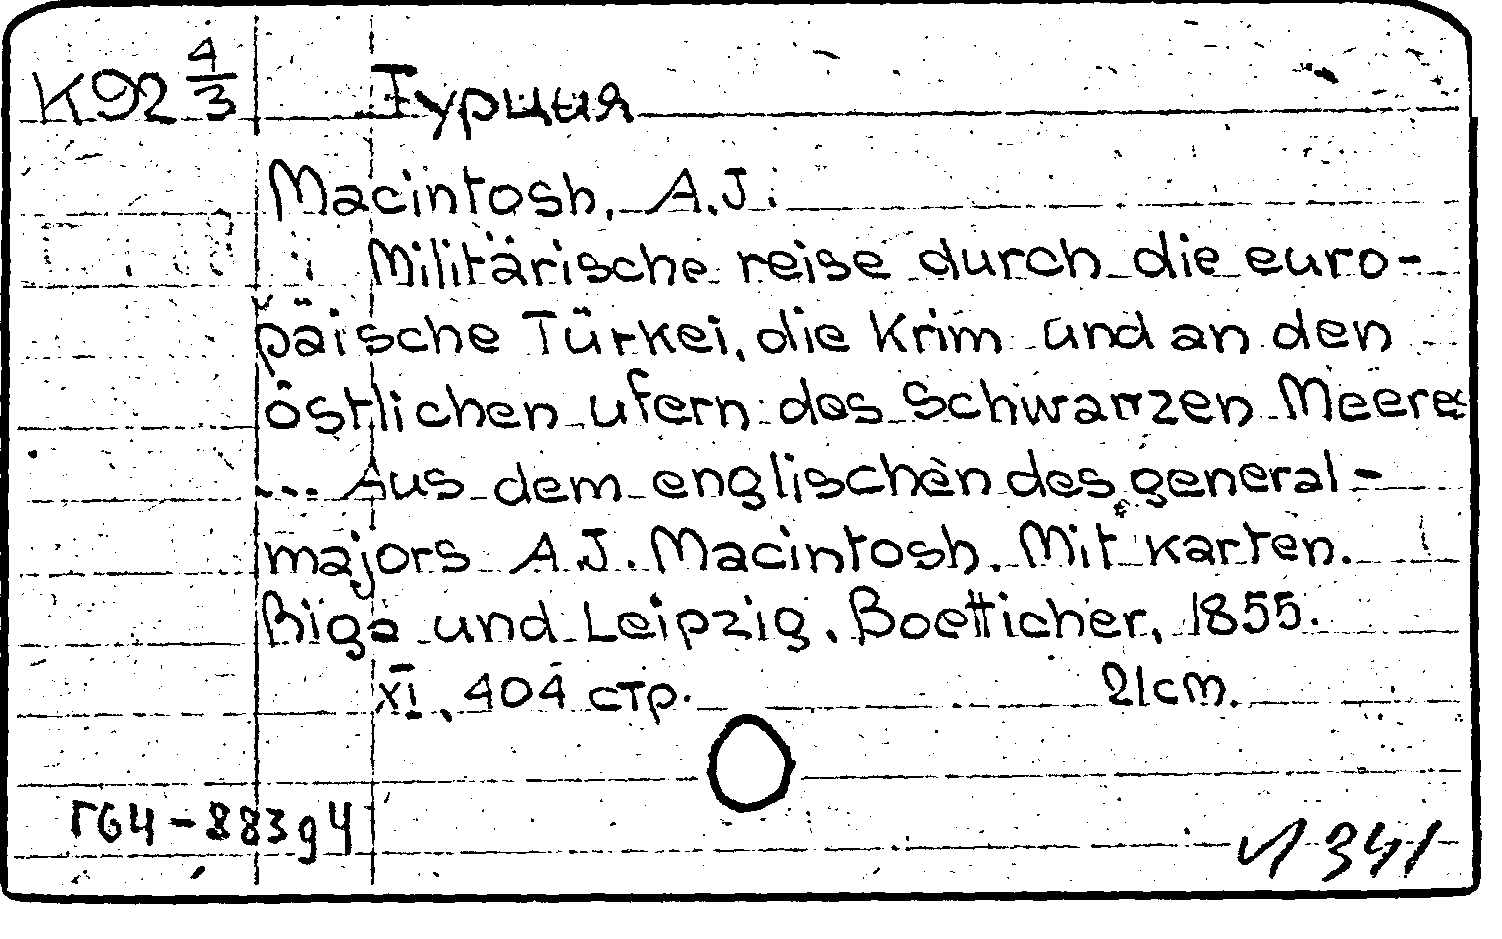 К92 4/3 Турция
Macintosh, A.J.
Militärische reise durch die euro-
päische Türkei, die Krim und an den
östlichen ufern des Schwarzen Meeres
... Aus dem englischen des general-
majors A.J. Macintosh. Mit karten.
Riga und Leipzig, Boetticher, 1855.
XI, 404 стр. 21cm.
Г64-883g4
И 341